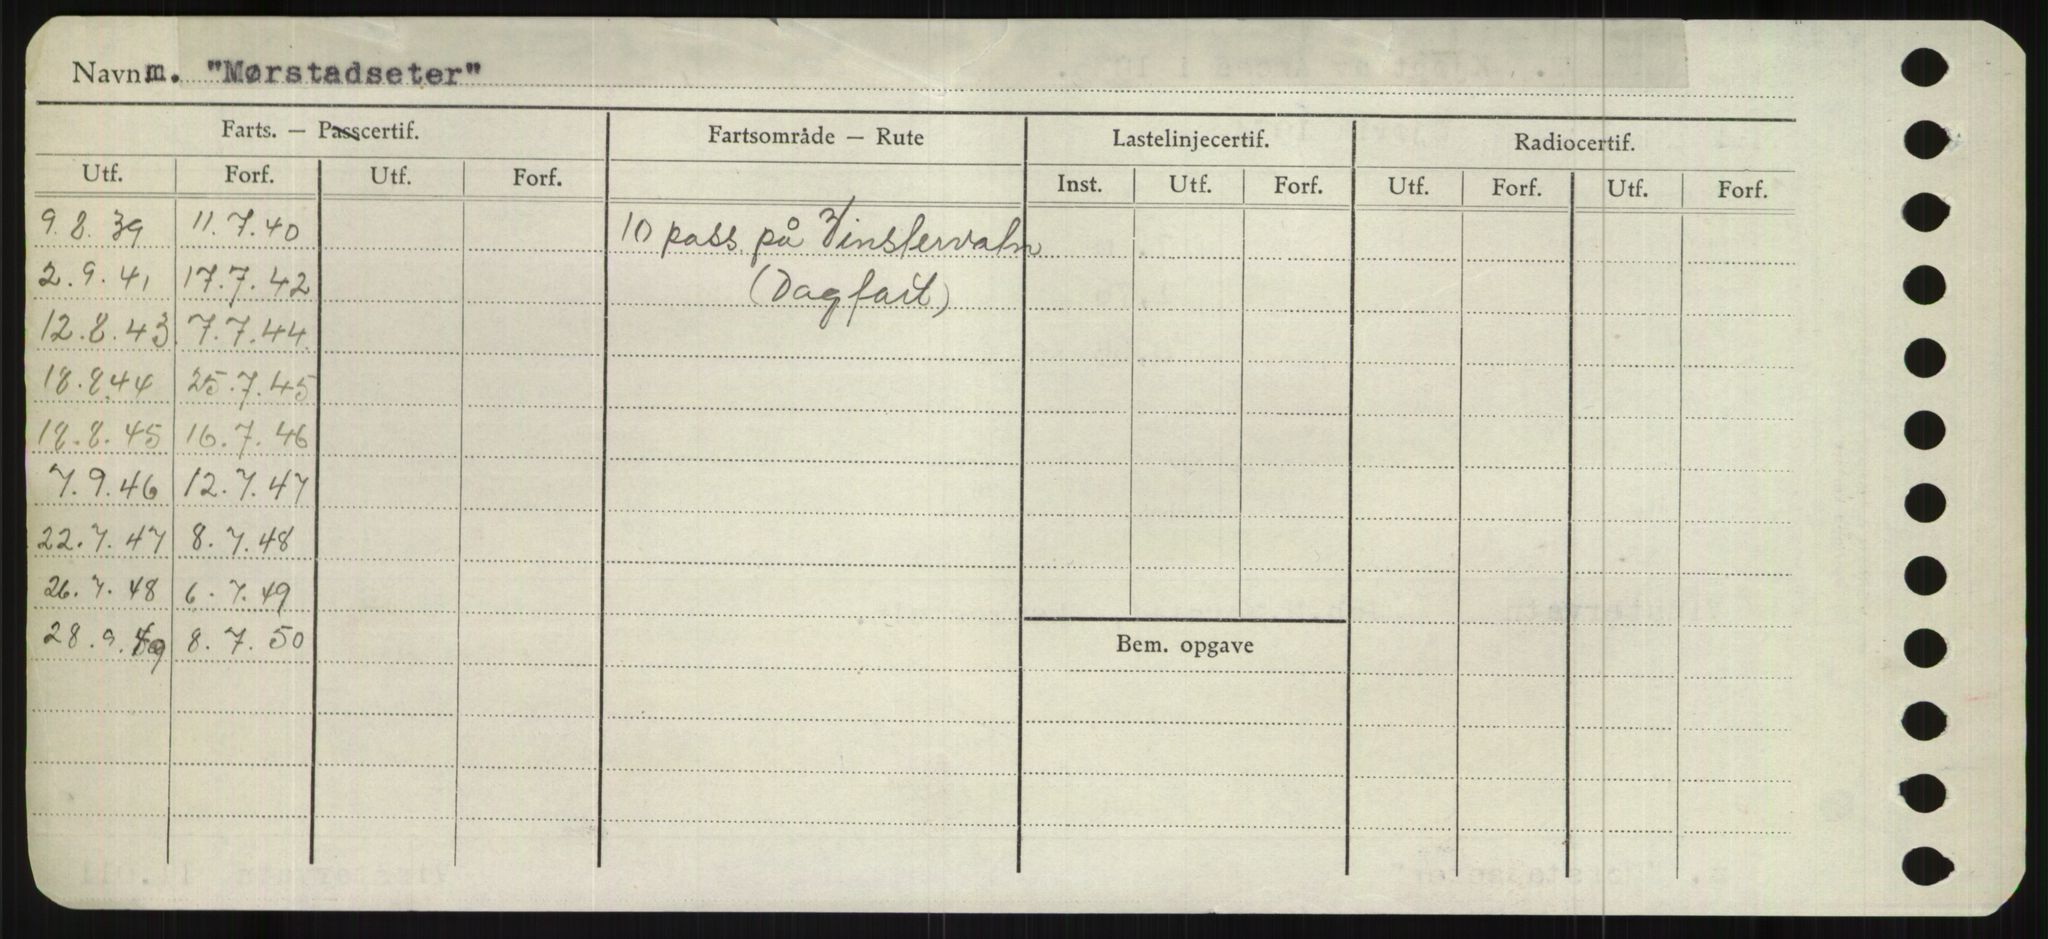 Navn m. "Mørstadseter"
Farts. — Passcertif. Fartsområde — Rute Lastelinjecertif. Radiocertif.
Utf. Forf. Utf. Forf. Inst. Utf. Forf. Utf. Forf. Utf. Forf.
9.8.39 11.7.40 10 pass på Vinstervatn
2.9.41 17.7.42 (Dagfart)
12.8.43 7.7.44
18.8.44 25.7.45
18.8.45 16.7.46
7.9.46 12.7.47
22.7.47 8.7.48
26.7.48 6.7.49
28.9.49 8.7.50
Bem. opgave